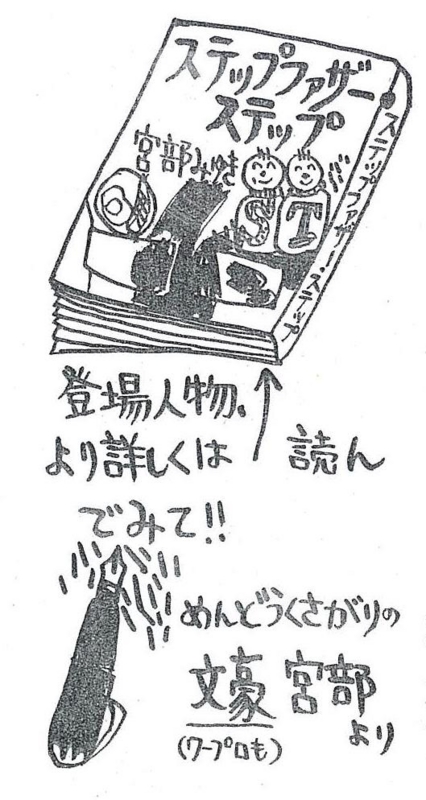 ステップファザー
ステップ
宮部みゆき
S T
ステップファザー・ステップ
登場人物、
より詳しくは 読ん
でみて!!
めんどうくさがりの
文豪 宮部
(ワープロも) より